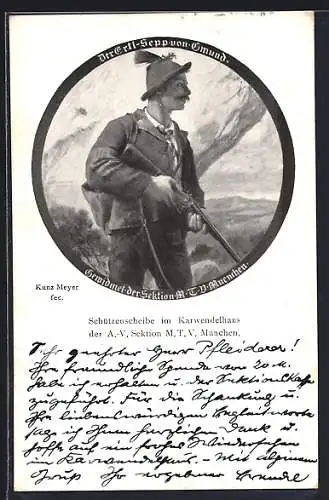 Der Ertl-Sepp von Gmund.
Gewidmet der Sektion M.T.V. Muenchen.
Kunz Meyer
fec.
Schützenscheibe im Karwendelhaus
der A.-V. Sektion M. T. V. München.
Sehr geehrter Herr Pfleiderer!
Ihre freundliche Spende von 20 M.
habe ich erhalten u. der Sektionskasse
zugeführt. Für die Schankung u.
Ihre liebenswürdigen Begleitworte
sage ich Ihnen herzlichen Dank u.
hoffe auf ein frohes Wiedersehen
im Karwendelhaus. – Mit alpinem
Gruss Ihr ergebener